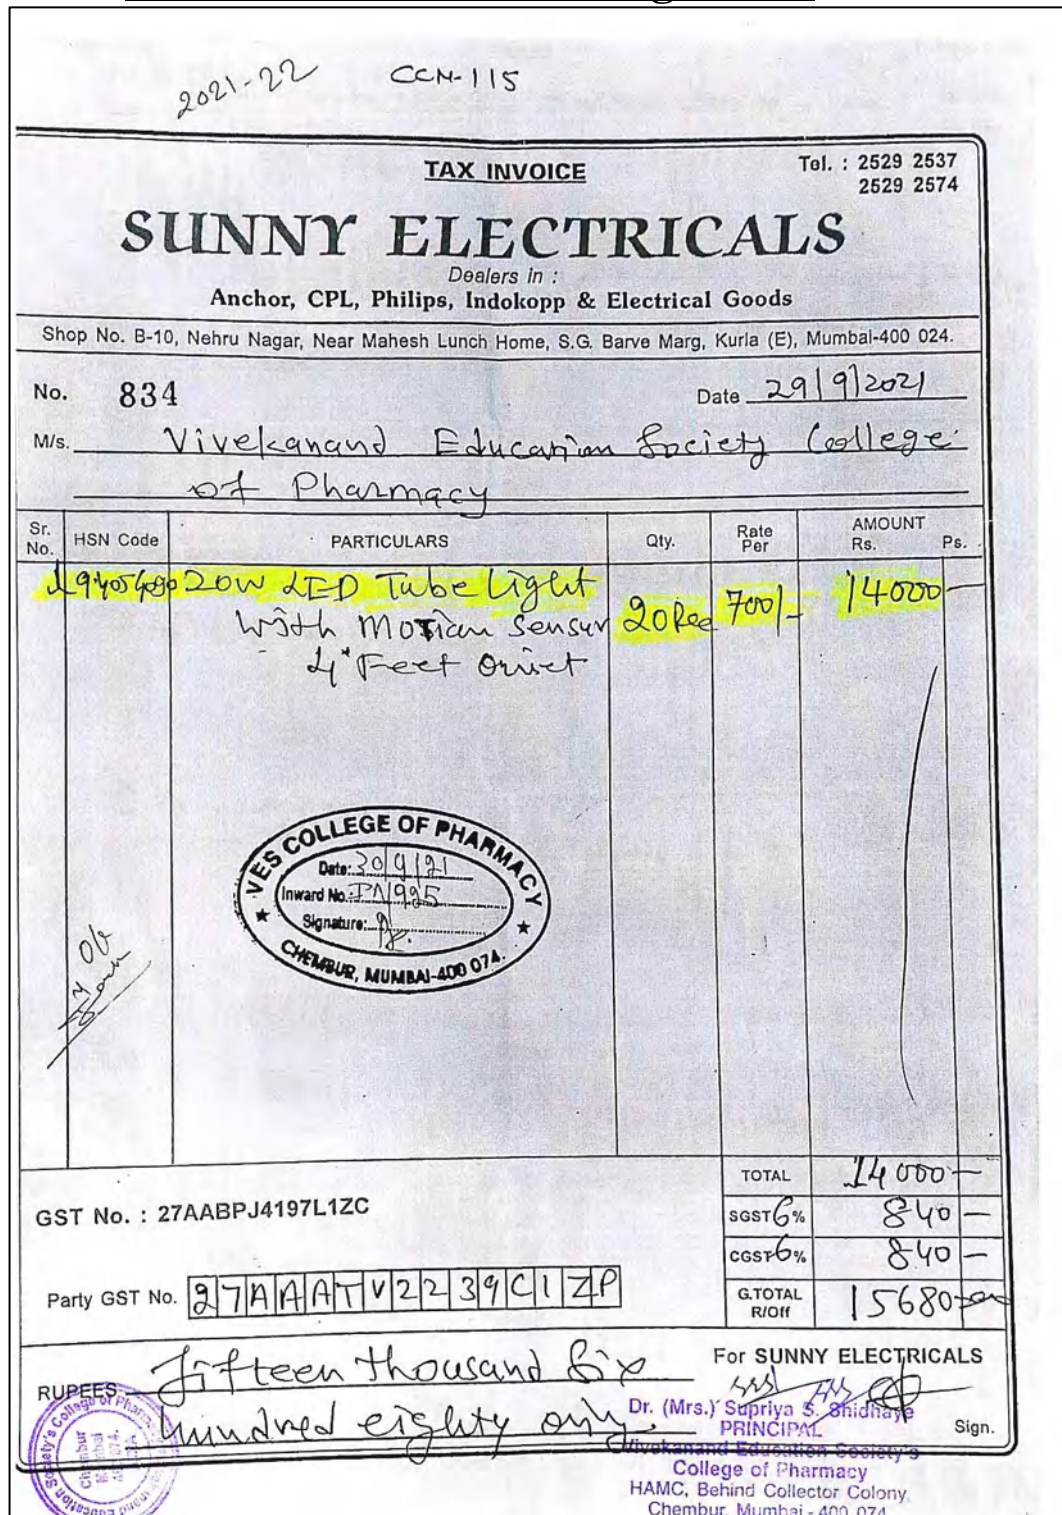 2021-22 CCM-115
TAX INVOICE
Tel. : 2529 2537
2529 2574
SUNNY ELECTRICALS
Dealers in :
Anchor, CPL, Philips, Indokopp & Electrical Goods
Shop No. B-10, Nehru Nagar, Near Mahesh Lunch Home, S.G. Barve Marg, Kurla (E), Mumbai-400 024.
No. 834 Date 29/9/2021
M/s. Vivekanand Education Society College
of Pharmacy
Sr. No. HSN Code PARTICULARS Qty. Rate Per AMOUNT Rs. Ps.
1 94054090 20W LED Tube Light 20 700/- 14000 —
With Motion Sensur
4" Feet
VES COLLEGE OF PHARMACY
Date: 30/9/21
Inward No.: PN/995
Signature:
CHEMBUR, MUMBAI-400 074.
TOTAL 14000 —
GST No. : 27AABPJ4197L1ZC
SGST 6% 840 —
CGST 6% 840 —
Party GST No. 27AAATV2239C1ZP
G.TOTAL R/Off 15680
RUPEES Fifteen thousand Six
hundred eighty only.
For SUNNY ELECTRICALS
Sign.
Dr. (Mrs.) Supriya S. Shidhaye
PRINCIPAL
Vivekanand Education Society's
College of Pharmacy
HAMC, Behind Collector Colony,
Chembur, Mumbai - 400 074